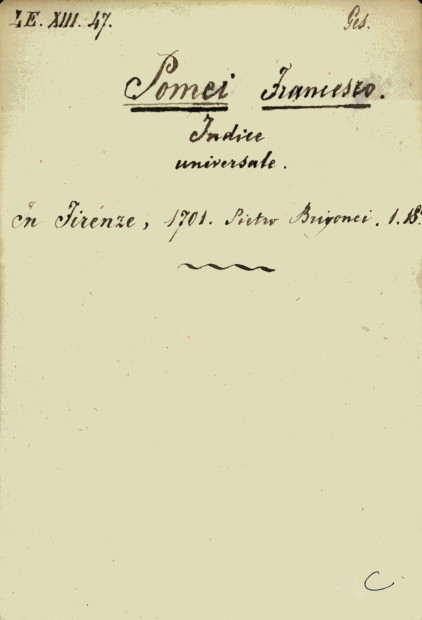 ZE. XIII. 47. Ges.
Pomei Francesco.
Indice
universale.
in Firenze, 1701. Pietro Brigonci. 1. 18°
C